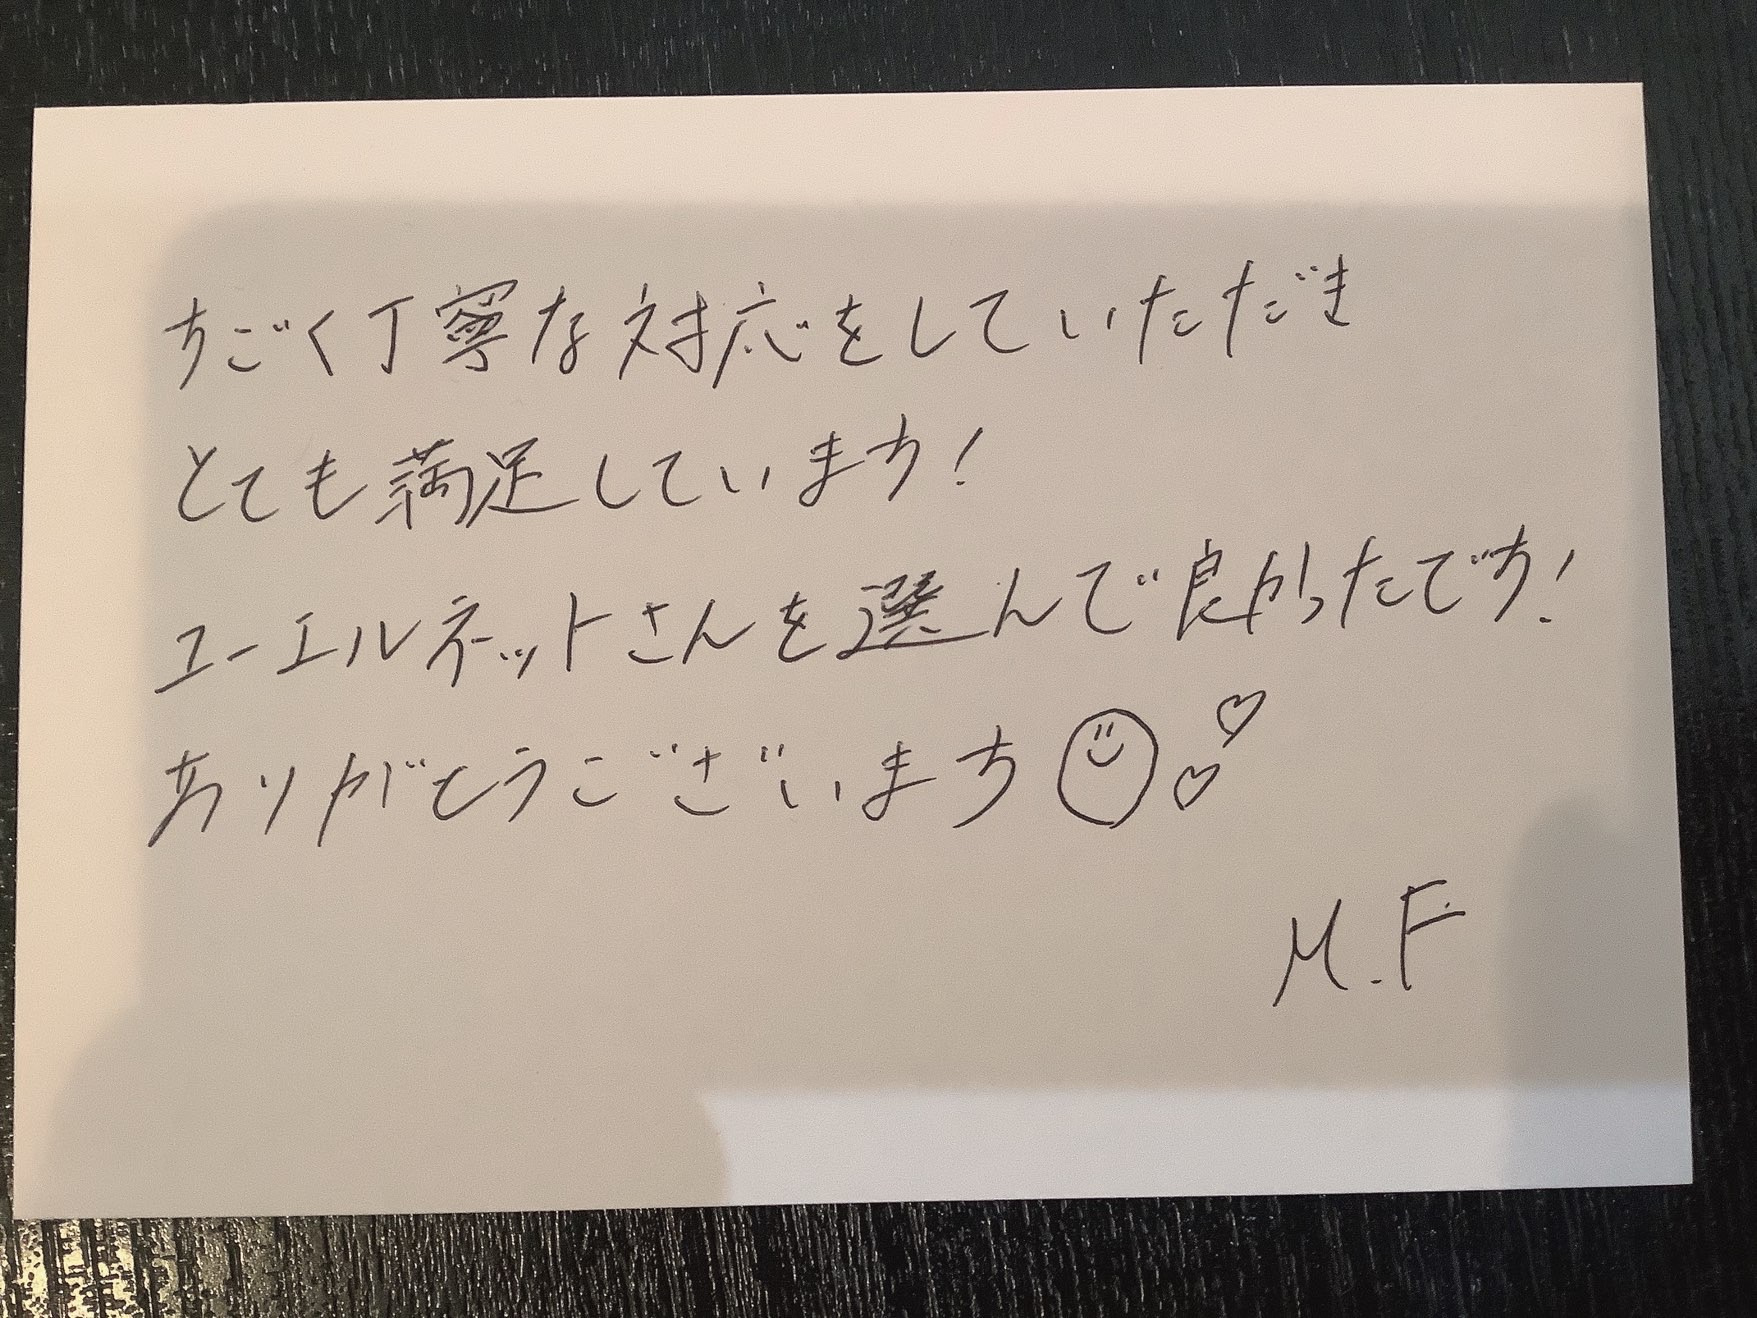 すごく丁寧な対応をしていただき
とても満足しています!
ユーエルネットさんを選んで良かったです!
ありがとうございます
M.F